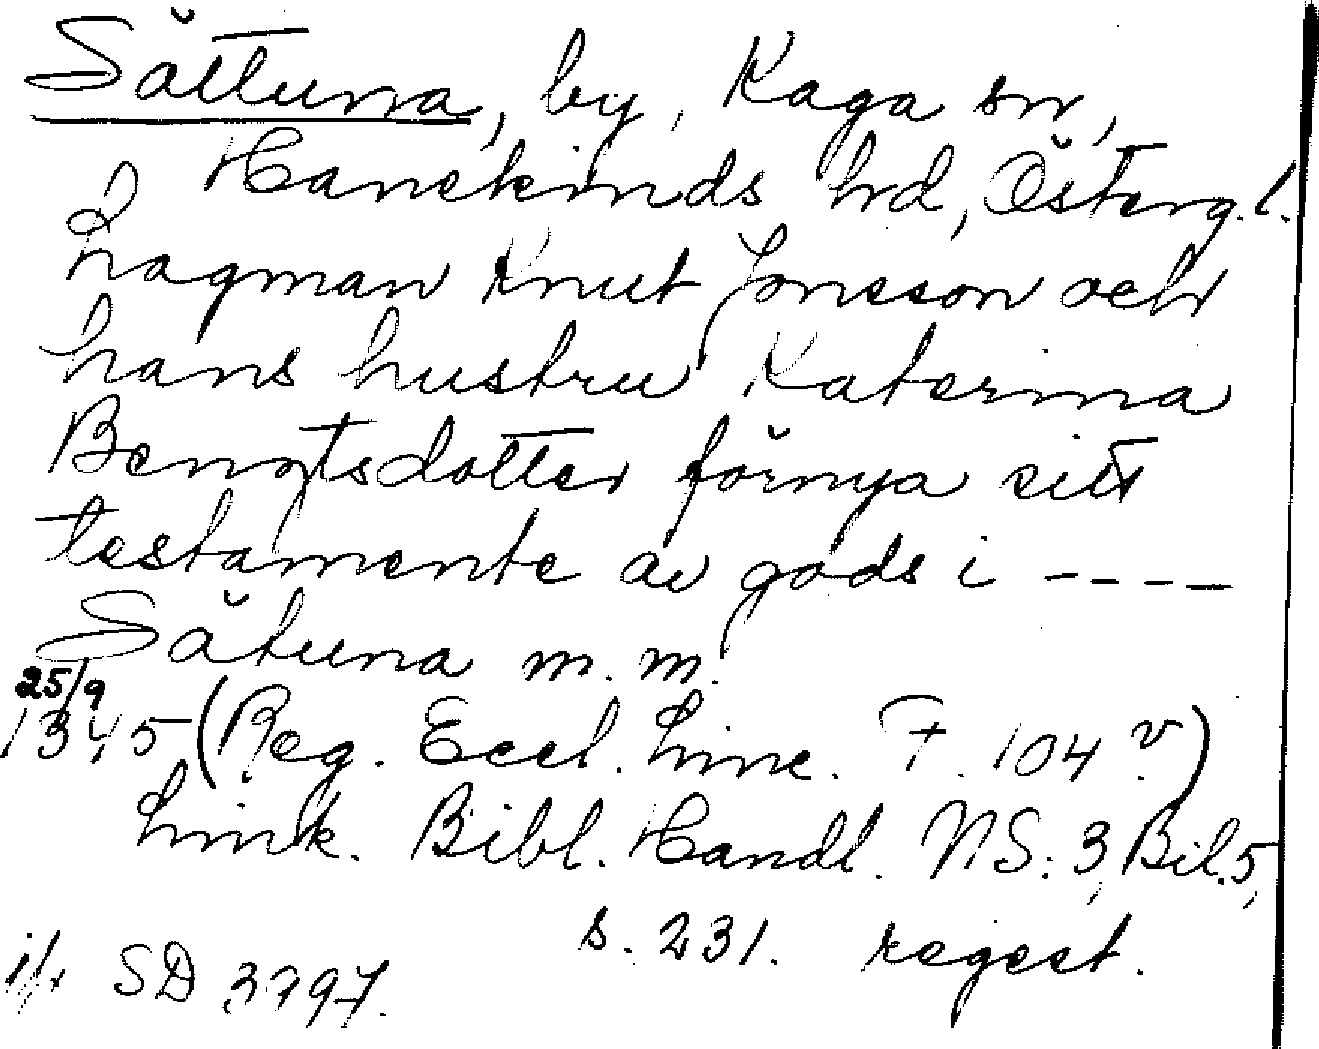 Sättuna, by, Kaga sn,
Hanekinds hrd, Österg.l.
Lagman Knut Jonsson och
hans hustru Katerina
Bengtsdotter förnya sitt
testamente av gods i ----
Sätuna m.m.
25/9
1345 (Reg. Eccl. Linc. F. 104 v.)
Link. Bibl. Handl. NS: 3, Bil. 5,
s. 231. regest.
SD 3797.